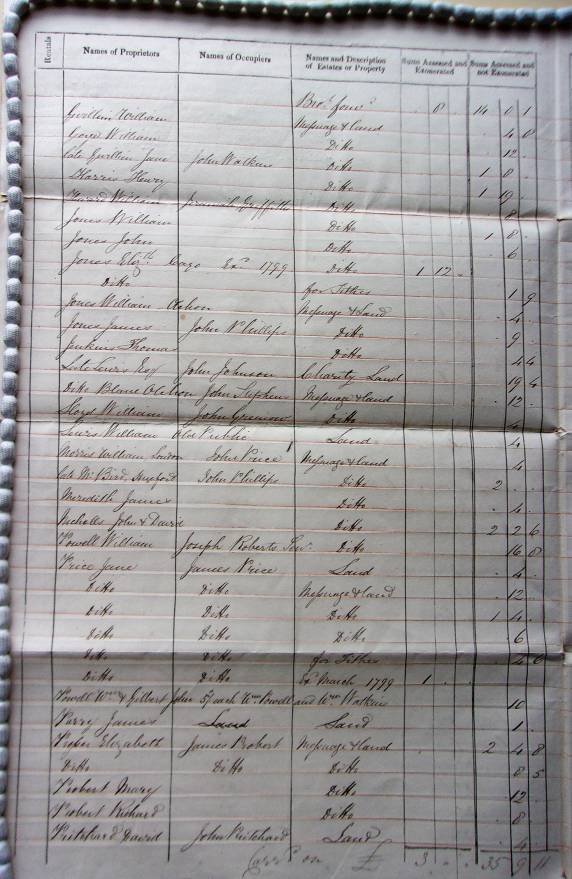 Rentals Names of Proprietors Names of Occupiers Names and Description of Estates or Property Sums Assessed and Exonerated Sums Assessed and not Exonerated
Bro.t forw.d 8 14 0 1
Gwillim William Messuage & land 4 8
Gove William Ditto 12
Late Gwillim Jane John Watkins Ditto 1 8
Harris Henry Ditto 1 19
William Jeremiah Griffith Ditto 8
Jones William Ditto 1 8
Jones John Ditto 6
Jones Eliz.th 1799 Ditto 1 12
Ditto for Tithes 1 9
Jones William Messuage & Land 4
Jones James John Phillips Ditto 9
Jenkins Thomas Ditto 4 4
Late Lewis Esq John Johnson Charity Land 19 4
Ditto John Stephens Messuage & land 12
Lloyd William John Ditto 4
Lewis William Land 4
Morris William London John Price Messuage & land 4
Late Bird John Phillips Ditto 2
Meredith James Ditto 4
Nicholls John & David Ditto 2 2 6
Powell William Joseph Roberts Sen.r Ditto 16 8
Price Jane James Price Land 4
Ditto Ditto Messuage & land 12
Ditto Ditto Ditto 1 4
Ditto Ditto Ditto 6
Ditto Ditto for Tithes 4 6
Ditto Ditto Ex March 1799 1
Powell W.m & Gilbert John 5/ each W.m Powell and W.m Watkins 10
Parry James Land Land 1
Prosser Elizabeth James Robert Messuage & land 2 4 8
Ditto Ditto Ditto 8 5
Robert Mary Ditto 12
Robert Richard Ditto 8
Pritchard David John Pritchard Land 4
Carr.d on £ 3 35 9 11